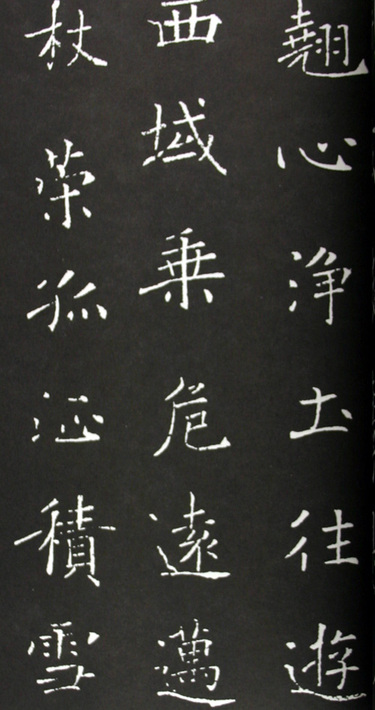 翹心浄土往遊
西域乗危遠邁
杖策孤征積雪